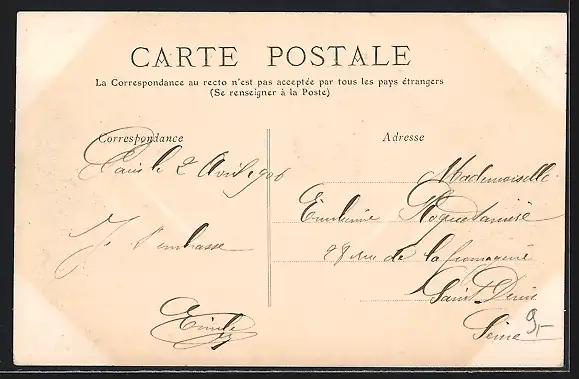 CARTE POSTALE
La Correspondance au recto n'est pas acceptée par tous les pays étrangers
(Se renseigner à la Poste)
Correspondance
Paris le 2 Avril 906
Je t'embrasse
Emile
Adresse
Mademoiselle
Emilienne
28 rue de la fromagerie
Saint Denis
Seine
9,-